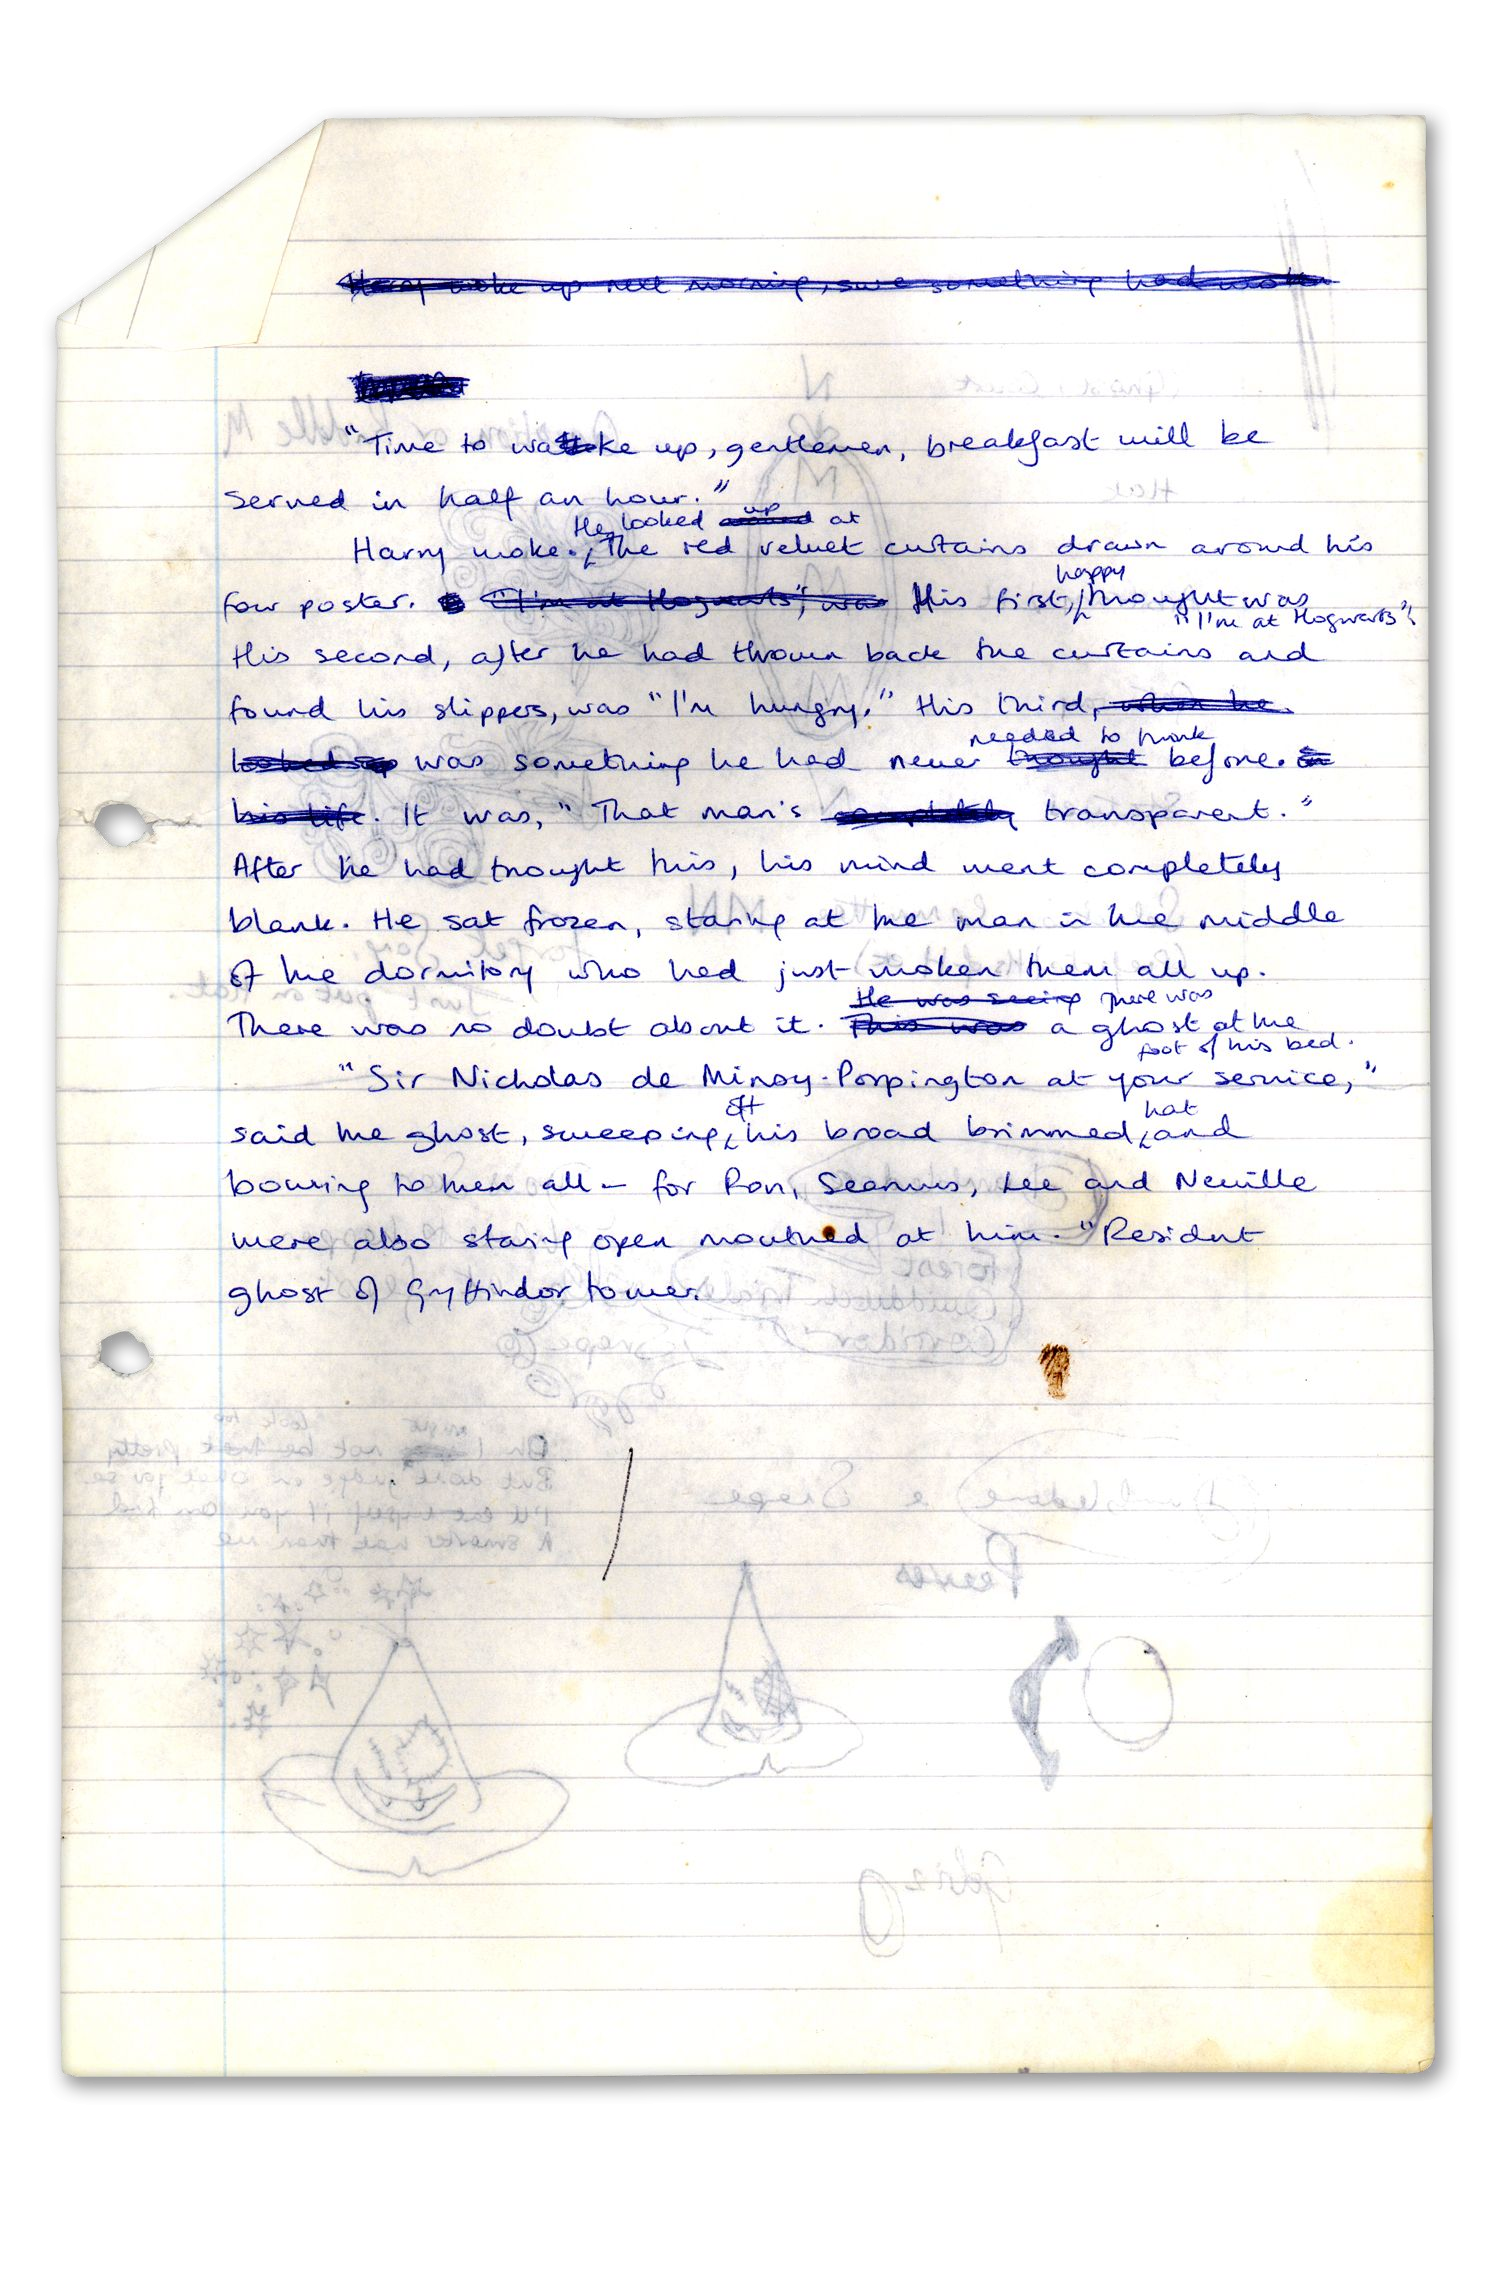 Harry woke up next morning, sure something had woken
"Time to wake up, gentlemen, breakfast will be
served in half an hour."
He looked up at
Harry woke. The red velvet curtains drawn around his
happy
four poster. "I'm at Hogwarts", was His first, thought was
"I'm at Hogwarts".
His second, after he had thrown back the curtains and
found his slippers, was "I'm hungry." His third, when he
needed to think
looked up was something he had never thought before. in
his life. It was, "That man's completely transparent."
After he had thought this, his mind went completely
blank. He sat frozen, staring at the man in the middle
of the dormitory who had just woken them all up.
He was seeing There was
There was no doubt about it. This was a ghost at the
foot of his bed.
"Sir Nicholas de Mimsy-Porpington at your service,"
off hat
said the ghost, sweeping his broad brimmed and
bowing to them all – for Ron, Seamus, Lee and Neville
were also staring open mouthed at him. "Resident
ghost of Gryffindor tower.
Oh I might not look too pretty
But don't judge on what you see
I'll eat myself if you can find
A smarter hat than me
Dumbledore Snape
Peeves